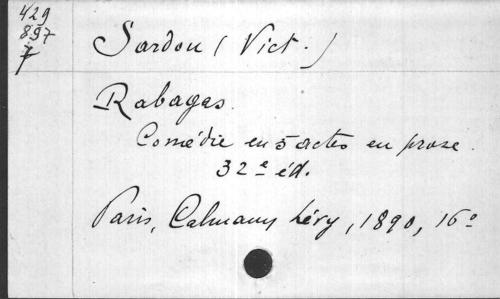 429
897
7
Sardou (Vict.)
Rabagas.
Comédie en 5 actes en prose.
32e éd.
Paris, Calmann Lévy, 1890, 16o